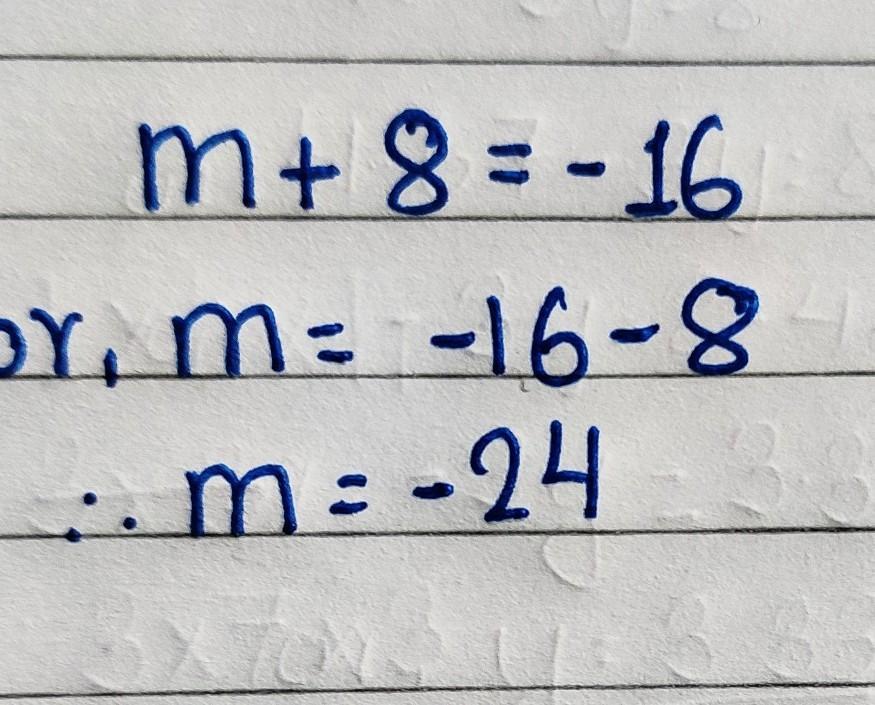 m + 8 = - 16
or, m = -16 - 8
∴ m = -24